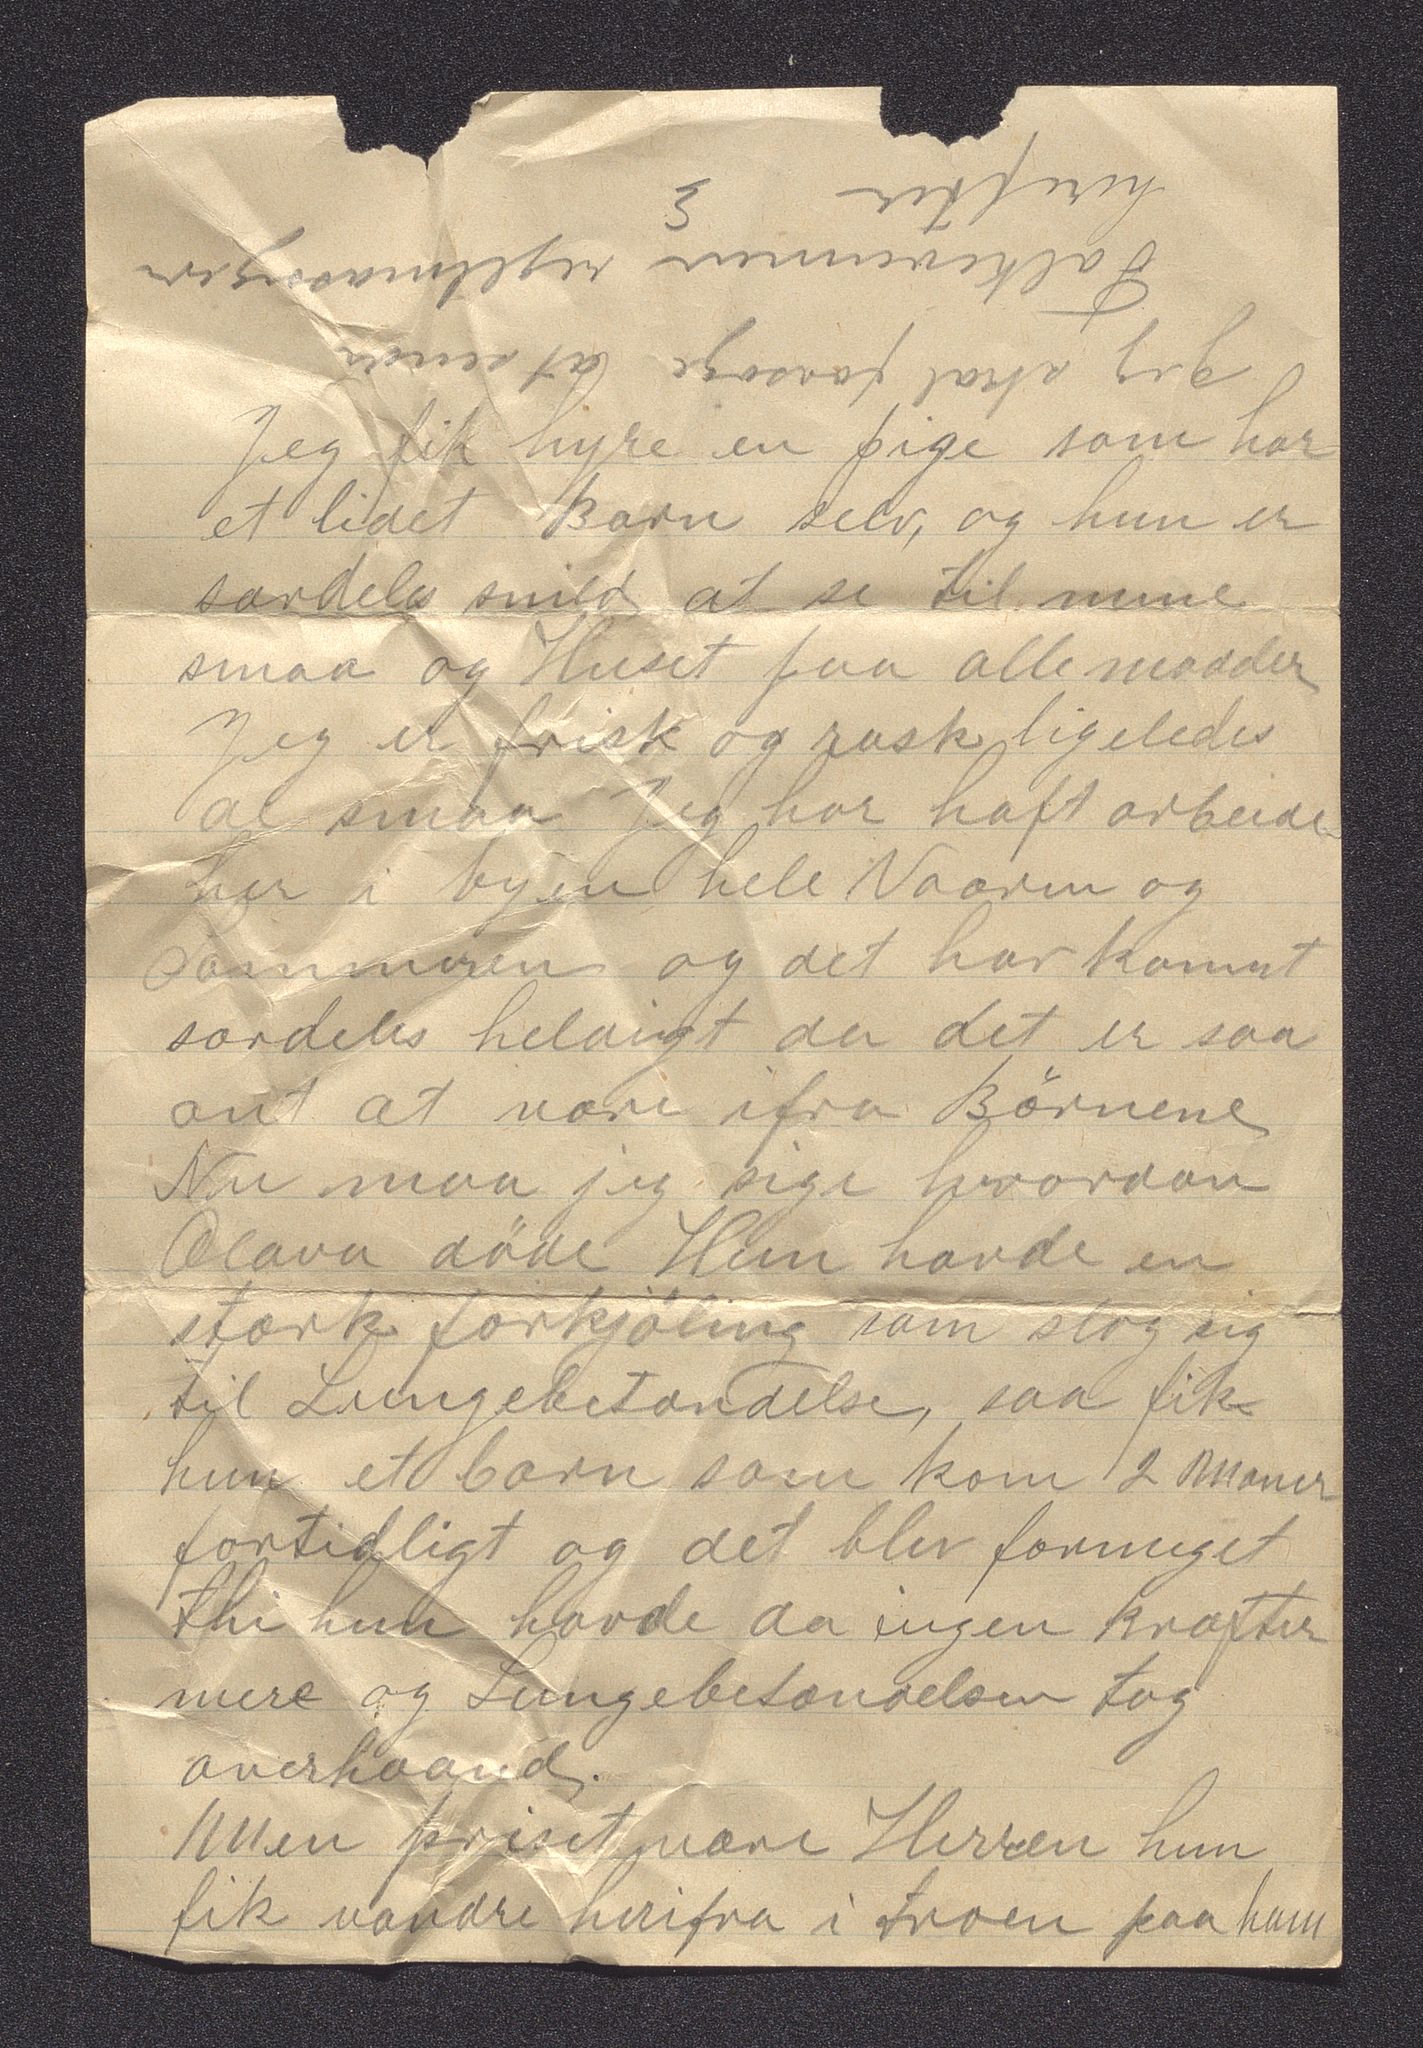 Jeg skal forsøge at sende
Folkevennen regelmæssigen
herefter
3
Jeg fik hyre en pige som har
et lidet Barn selv, og hun er
særdeles snild at se til mine
smaa og Huset paa alle maader
Jeg er frisk og rask ligeledes
al smaa Jeg har haft arbeide
her i byen hele Vaaren og
Sommeren og det har komet
særdeles heldigt da det er saa
ont at være ifra Börnene
Nu maa jeg sige hvordan
Olava döde Hun havde en
stærk forkjöling som slog sig
til Lungebetændelse, saa fik
hun et barn som kom 2 Maner
fortidligt og det blev formeget
thi hun havde da ingen kræfter
mere og Lungebetændelsen tog
overhaand.
Men priset være Herren hun
fik vandre herifra i troen paa ham